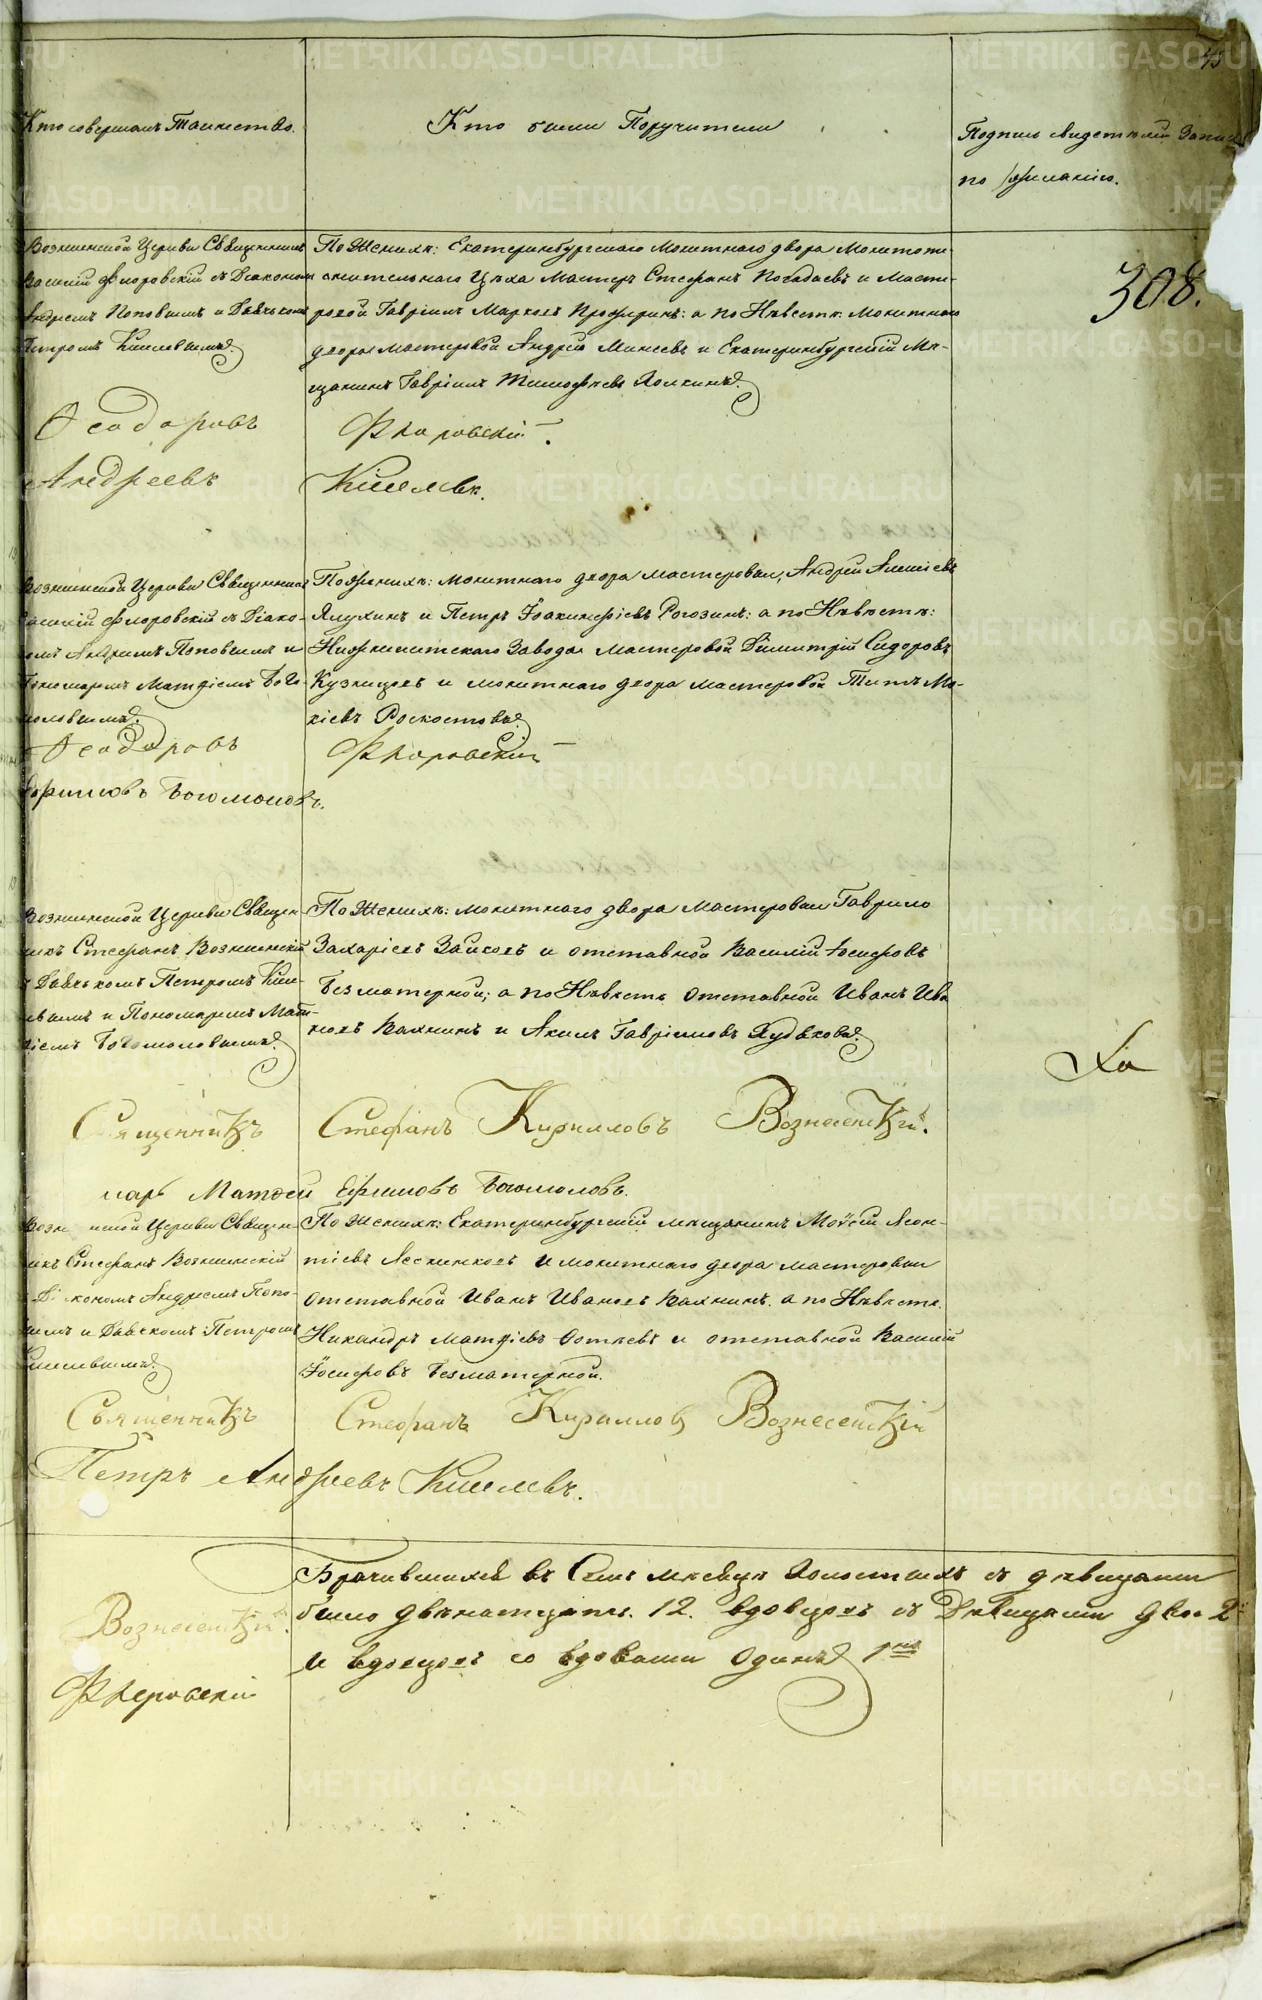 45
Кто совершалъ Таинство.
Кто были Поручители
Подпись свидетелей Записи
по желанію.
308.
Вознесенской Церкви Священникъ
Василій Флоровскій съ Діакономъ
Андреемъ Поповымъ и Дьячкомъ
Петромъ Киселевымъ.
По Женихѣ: Екатеринбургскаго Монетнаго двора Монетоти-
снительнаго Цѣха Мастеръ Стефанъ Погадаевъ и Масте-
ровой Гавріилъ Марковъ Прожеринъ: а по Невѣстѣ: Монетнаго
двора мастеровой Андрей Минеевъ и Екатеринбургскій Мѣ-
щанинъ Гавріилъ Тимофѣевъ Холкинъ.
Ѳеодоровъ Флоровскій.
Андреевъ Киселевъ.
Вознесенской Церкви Священникъ
Василій Флоровскій съ Діако-
номъ Андреемъ Поповымъ и
Пономаремъ Матѳіемъ Бого-
моловымъ.
По Женихѣ: монетнаго двора мастеровые, Андрей Алексіевъ
Ялухинъ и Петръ Іоакинфіевъ Рогозинъ: а по Невѣстѣ:
Нижнеисетскаго Завода мастеровой Димитрій Сидоровъ
Кузнецовъ и монетнаго двора мастеровой Титъ Мо-
кіевъ Роскостовъ.
Ѳеодоровъ Флоровскій
Ефимовъ Богомоловъ.
Вознесенской Церкви Священ-
никъ Стефанъ Вознесенскій
съ Дьячкомъ Петромъ Кисе-
левымъ и Пономаремъ Мат-
ѳіемъ Богомоловымъ.
По Женихѣ: монетнаго двора мастеровые Гаврило
Захаріевъ Зайковъ и отставной Василій Іосифовъ
Безматерной; а по Невѣстѣ отставной Иванъ Ива-
новъ Вахнинъ и Акимъ Гавріиловъ Худяковъ.
Священникъ Стефанъ Кирилловъ Вознесенскій.
марь Матѳей Ефимовъ Богомоловъ.
Возне нской Церкви Священ-
никъ Стефанъ Вознесенскій
съ Діакономъ Андреемъ Попо-
вымъ и Дьячкомъ Петромъ
Киселевымъ.
По Женихѣ: Екатеринбургскій мѣщанинъ Моисей Леон-
тіевъ Лескинковъ и монетнаго двора мастеровые
отставной Иванъ Ивановъ Вахнинъ. а по Невѣстѣ.
Никандръ Матѳіевъ Фотѣевъ и отставной Василій
Іосифовъ Безматерной.
Священникъ Стефанъ Кирилловъ Вознесенскій
Петръ Андреевъ Киселевъ.
Брачившихся въ Семъ мѣсяцѣ Холостыхъ съ дѣвицами
было двѣнатцать. 12. вдовцовъ съ Дѣвицами двое 2
и вдовцовъ со вдовами Одинъ 1
Вознесенскій.
Флоровскій
METRIKI.GASO-URAL.RU